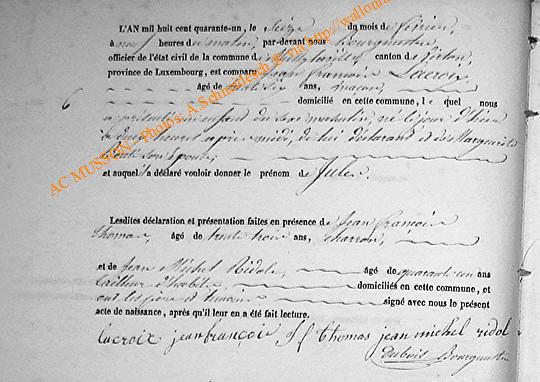 L'AN mil huit cent quarante-un, le Seize du mois de février,
à neuf heures du matin, par-devant nous Bourgmestre
officier de l'état civil de la commune de canton de Virton,
province de Luxembourg, est comparu Jean françois Lacroix
âgé de trente six ans, maçon,
domicilié en cette commune, le quel nous
a présenté un enfant de sexe masculin, né le jour d'hier
à heures après midi, de lui déclarant et de Marguerite
son Epouse,
et auquel a déclaré vouloir donner le prénom de Jules.
Lesdites déclaration et présentation faites en présence de Jean françois
thomas, âgé de trente trois ans, charron,
et de Jean Michel Ridole, âgé de quarante un ans
tailleur d'habits, domiciliés en cette commune, et
ont les père et témoins signé avec nous le présent
acte de naissance, après qu'il leur en a été fait lecture.
lacroix jean françois thomas jean michel ridol
Dubois Bourgmestre
AC MUSSON - Photos: A.Schleich via http://wallonia